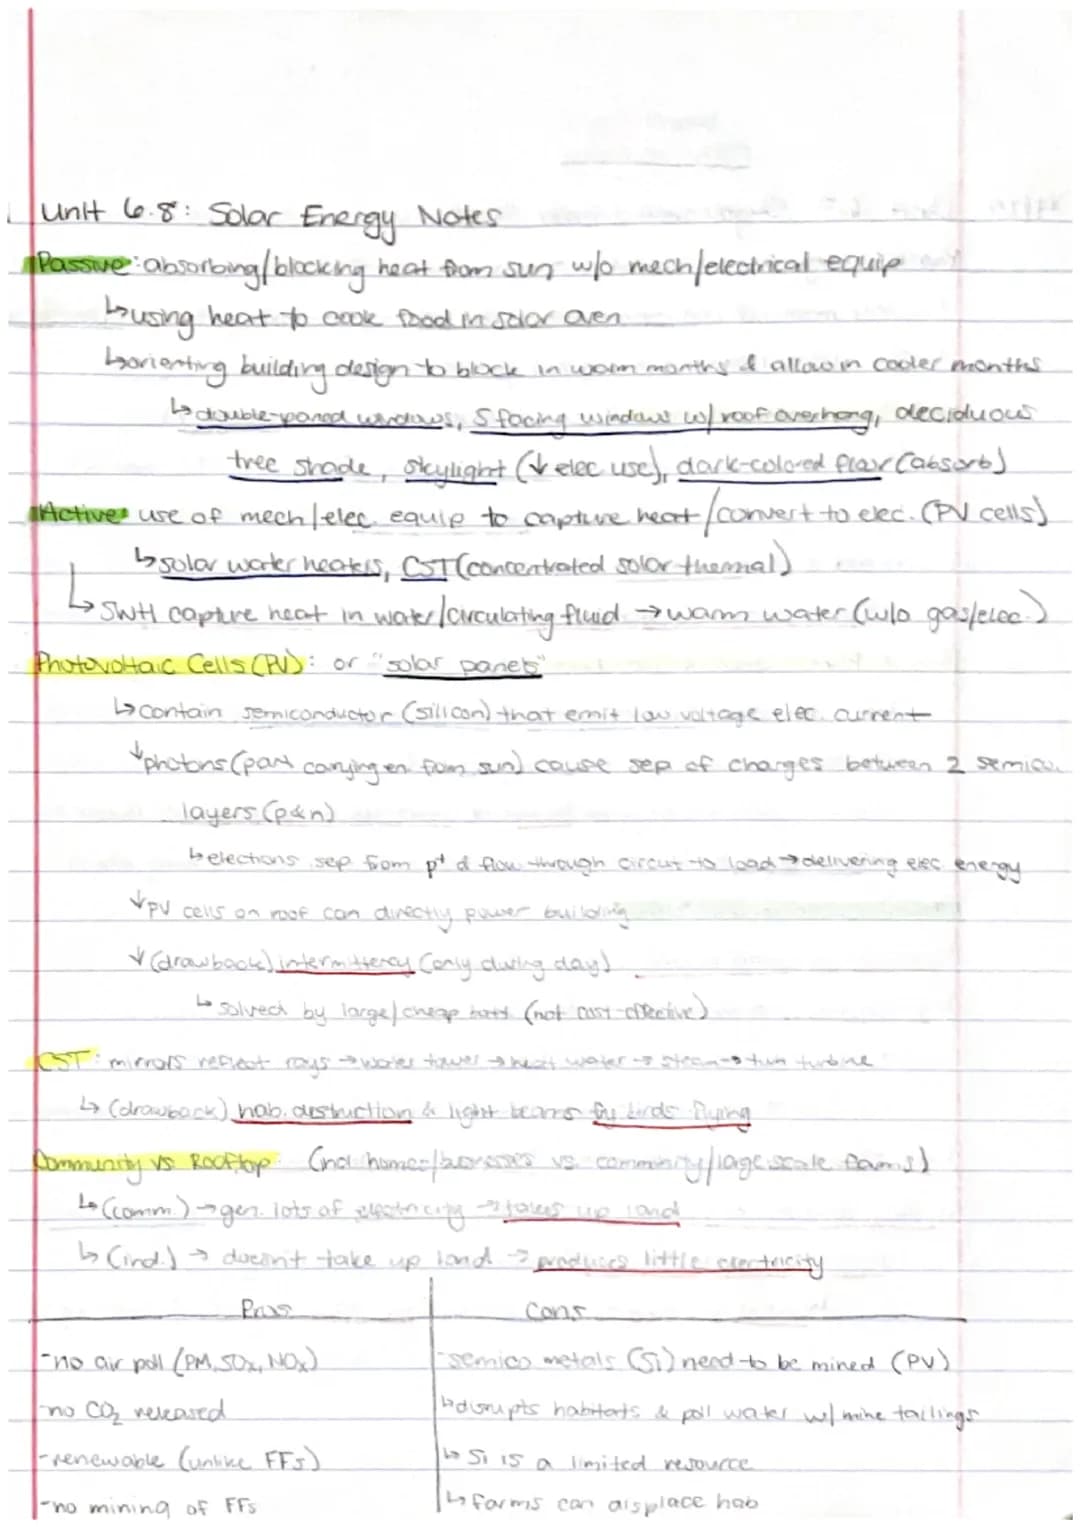 Unit 6.8: Solar Energy Notes
Passive: absorbing/blocking heat from sun w/o mech/electrical equip
↳using heat to cook food in solar oven
↳orienting building design to block in warm months & allow in cooler months
↳double-paned windows, S facing windows w/ roof overhang, deciduous
tree shade, skylight (↓ elec use), dark-colored floor (absorb)
Active: use of mech/elec. equip to capture heat/convert to elec. (PV cells)
↳solar water heaters, CST (concentrated solar thermal)
↳SWH capture heat in water/circulating fluid → warm water (w/o gas/elec.)
Photovoltaic Cells (PV): or "solar panels"
↳contain semiconductor (silicon) that emit low voltage elec. current
↓photons (part carrying en. from sun) cause sep of charges between 2 semico.
layers (p&n)
↳electrons sep from p⁺ & flow through circut to load → delivering elec. energy
↓PV cells on roof can directly power building
↓(drawback) intermittency (only during day)
↳solved by large/cheap batt. (not cost-effective)
CST: mirrors reflect rays → water tower → heat water → steam → turn turbine
↳(drawback) hab. destruction & light beams fry birds flying
Community vs Rooftop: (ind homes/businesses vs. community/large scale farms)
↳(comm.) → gen. lots of electricity → takes up land
↳(ind.) → doesn't take up land → produces little electricity
Pros Cons
-no air poll (PM, SOx, NOx) -semico metals (Si) need to be mined (PV)
-no CO₂ released ↳disrupts habitats & poll water w/ mine tailings
-renewable (unlike FFs) ↳Si is a limited resource
-no mining of FFs ↳farms can displace hab